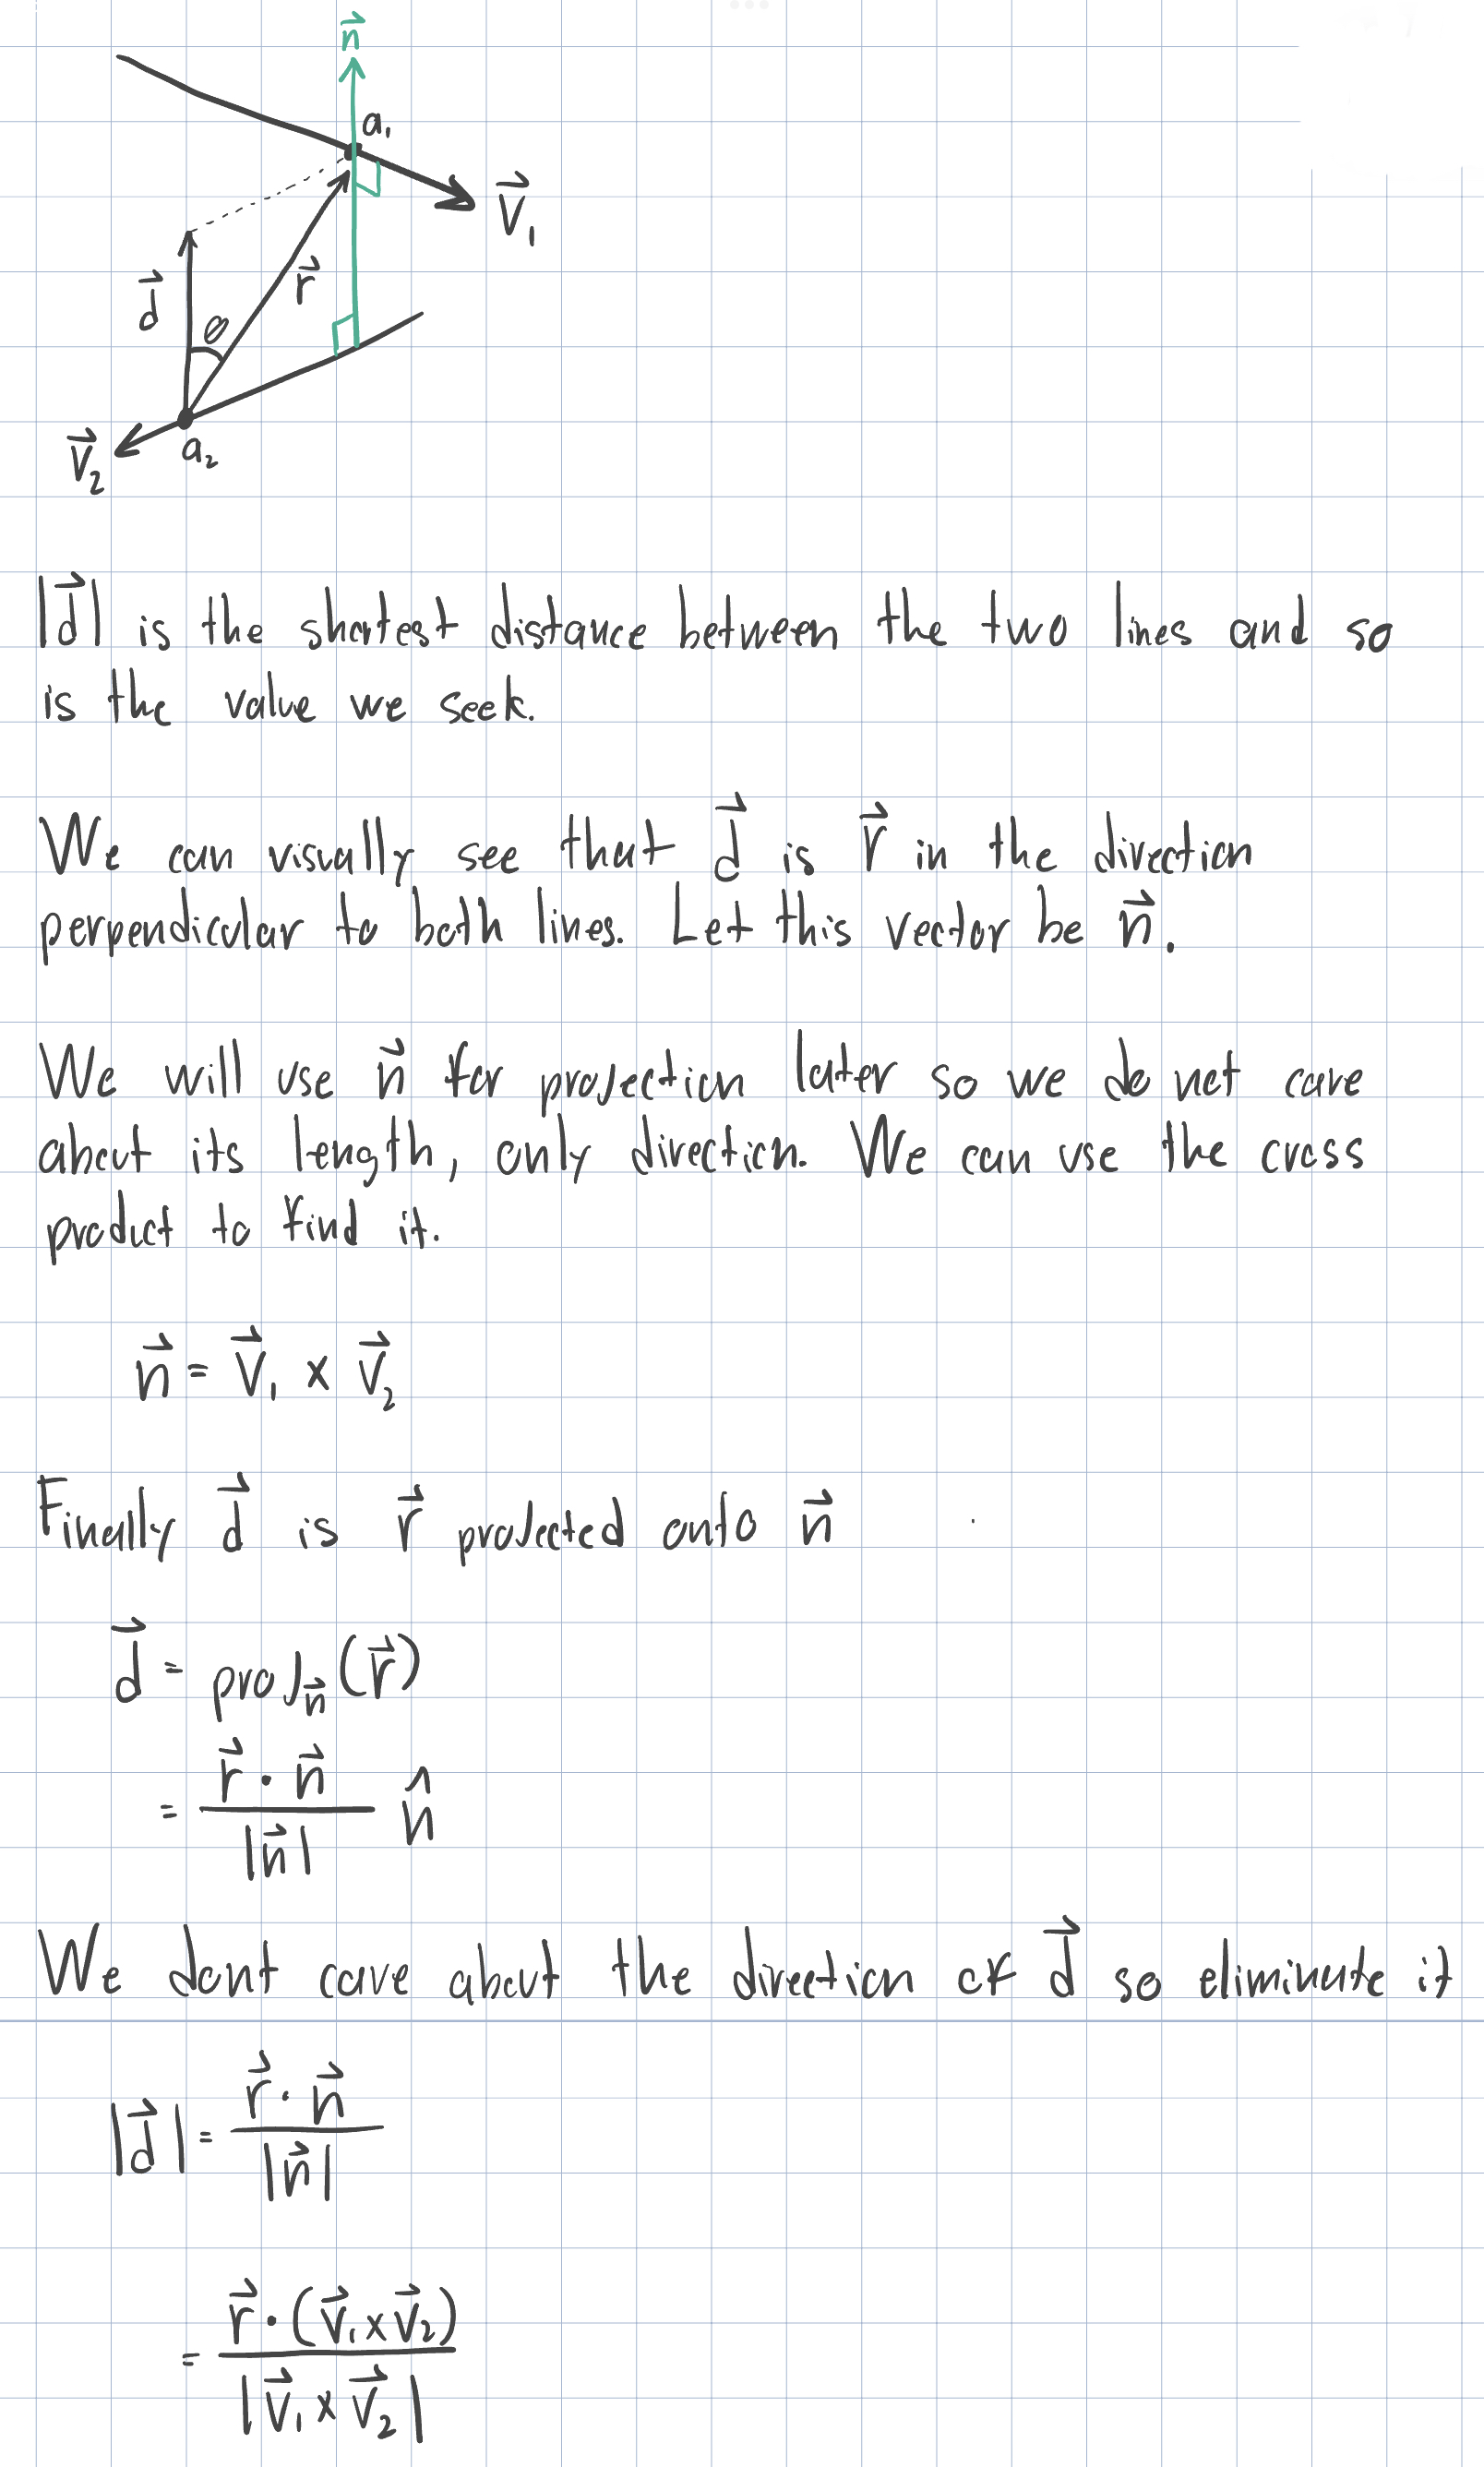 n⃗
a₁
V⃗₁
d⃗
θ
r⃗
V⃗₂
a₂
|d⃗| is the shortest distance between the two lines and so
is the value we seek.
We can visually see that d⃗ is r⃗ in the direction
perpendicular to both lines. Let this vector be n⃗.
We will use n⃗ for projection later so we do not care
about its length, only direction. We can use the cross
product to find it.
n⃗ = V⃗₁ × V⃗₂
Finally d⃗ is r⃗ projected onto n⃗
d⃗ = proj_n⃗ (r⃗)
= (r⃗ · n⃗) / |n⃗| n̂
We dont care about the direction of d⃗ so eliminate it
|d⃗| = (r⃗ · n⃗) / |n⃗|
= (r⃗ · (V⃗₁ × V⃗₂)) / |V⃗₁ × V⃗₂|